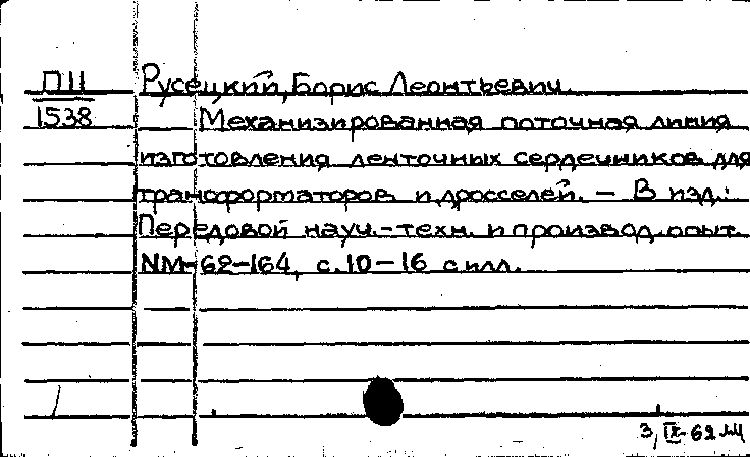 П11
1538
Русецкий, Борис Леонтьевич.
Механизированная поточная линия
изготовления ленточных сердечников для
трансформаторов и дросселей. — В изд.:
Передовой науч.-техн. и производ. опыт.
NM-62-164, с. 10-16 с илл.
3, IX-62